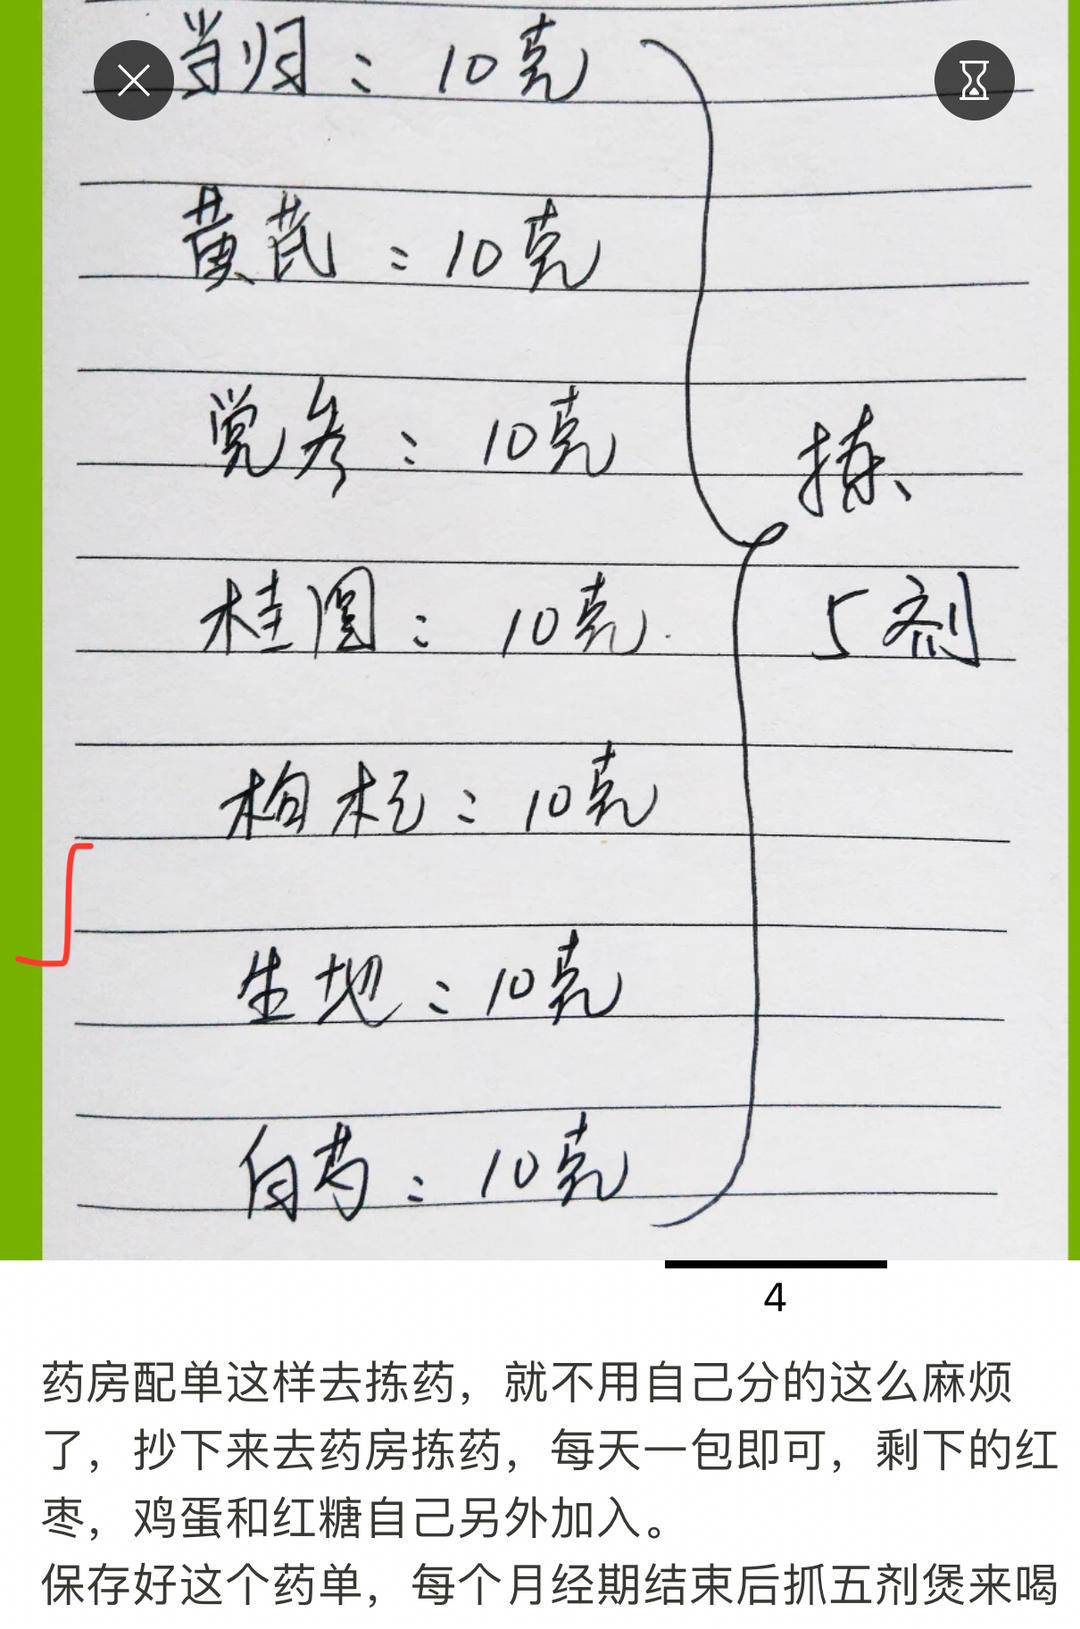 当归：10克
黄芪：10克
党参：10克
拣
桂圆：10克
5剂
枸杞：10克
生地：10克
白芍：10克
4
药房配单这样去拣药，就不用自己分的这么麻烦
了，抄下来去药房拣药，每天一包即可，剩下的红
枣，鸡蛋和红糖自己另外加入。
保存好这个药单，每个月经期结束后抓五剂煲来喝